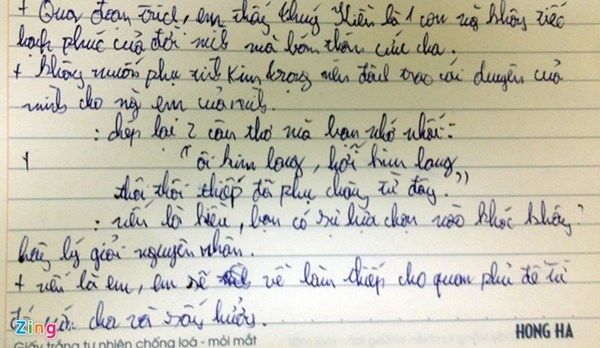 + Qua đoạn trích, em thấy Thuý Kiều là 1 con ng không tiếc
hạnh phúc của đời mình mà bán thân cứu cha.
+ Không muốn phụ tình Kim trọng nên đành trao cái duyên của
mình cho ng em của mình.
: chép lại 2 câu thơ mà bạn nhớ nhất:
"ôi kim lang, hỡi kim lang
thôi thôi thiếp đã phụ chàng từ đây."
: nếu là kiều, bạn có sự lựa chọn nào khác không?
hãy lý giải nguyên nhân.
+ nếu là em, em sẽ về làm thiếp cho quan phủ để từ
đó cha và sung sướng.
Zing
HONG HA
Giấy trắng tự nhiên chống loá - mỏi mắt